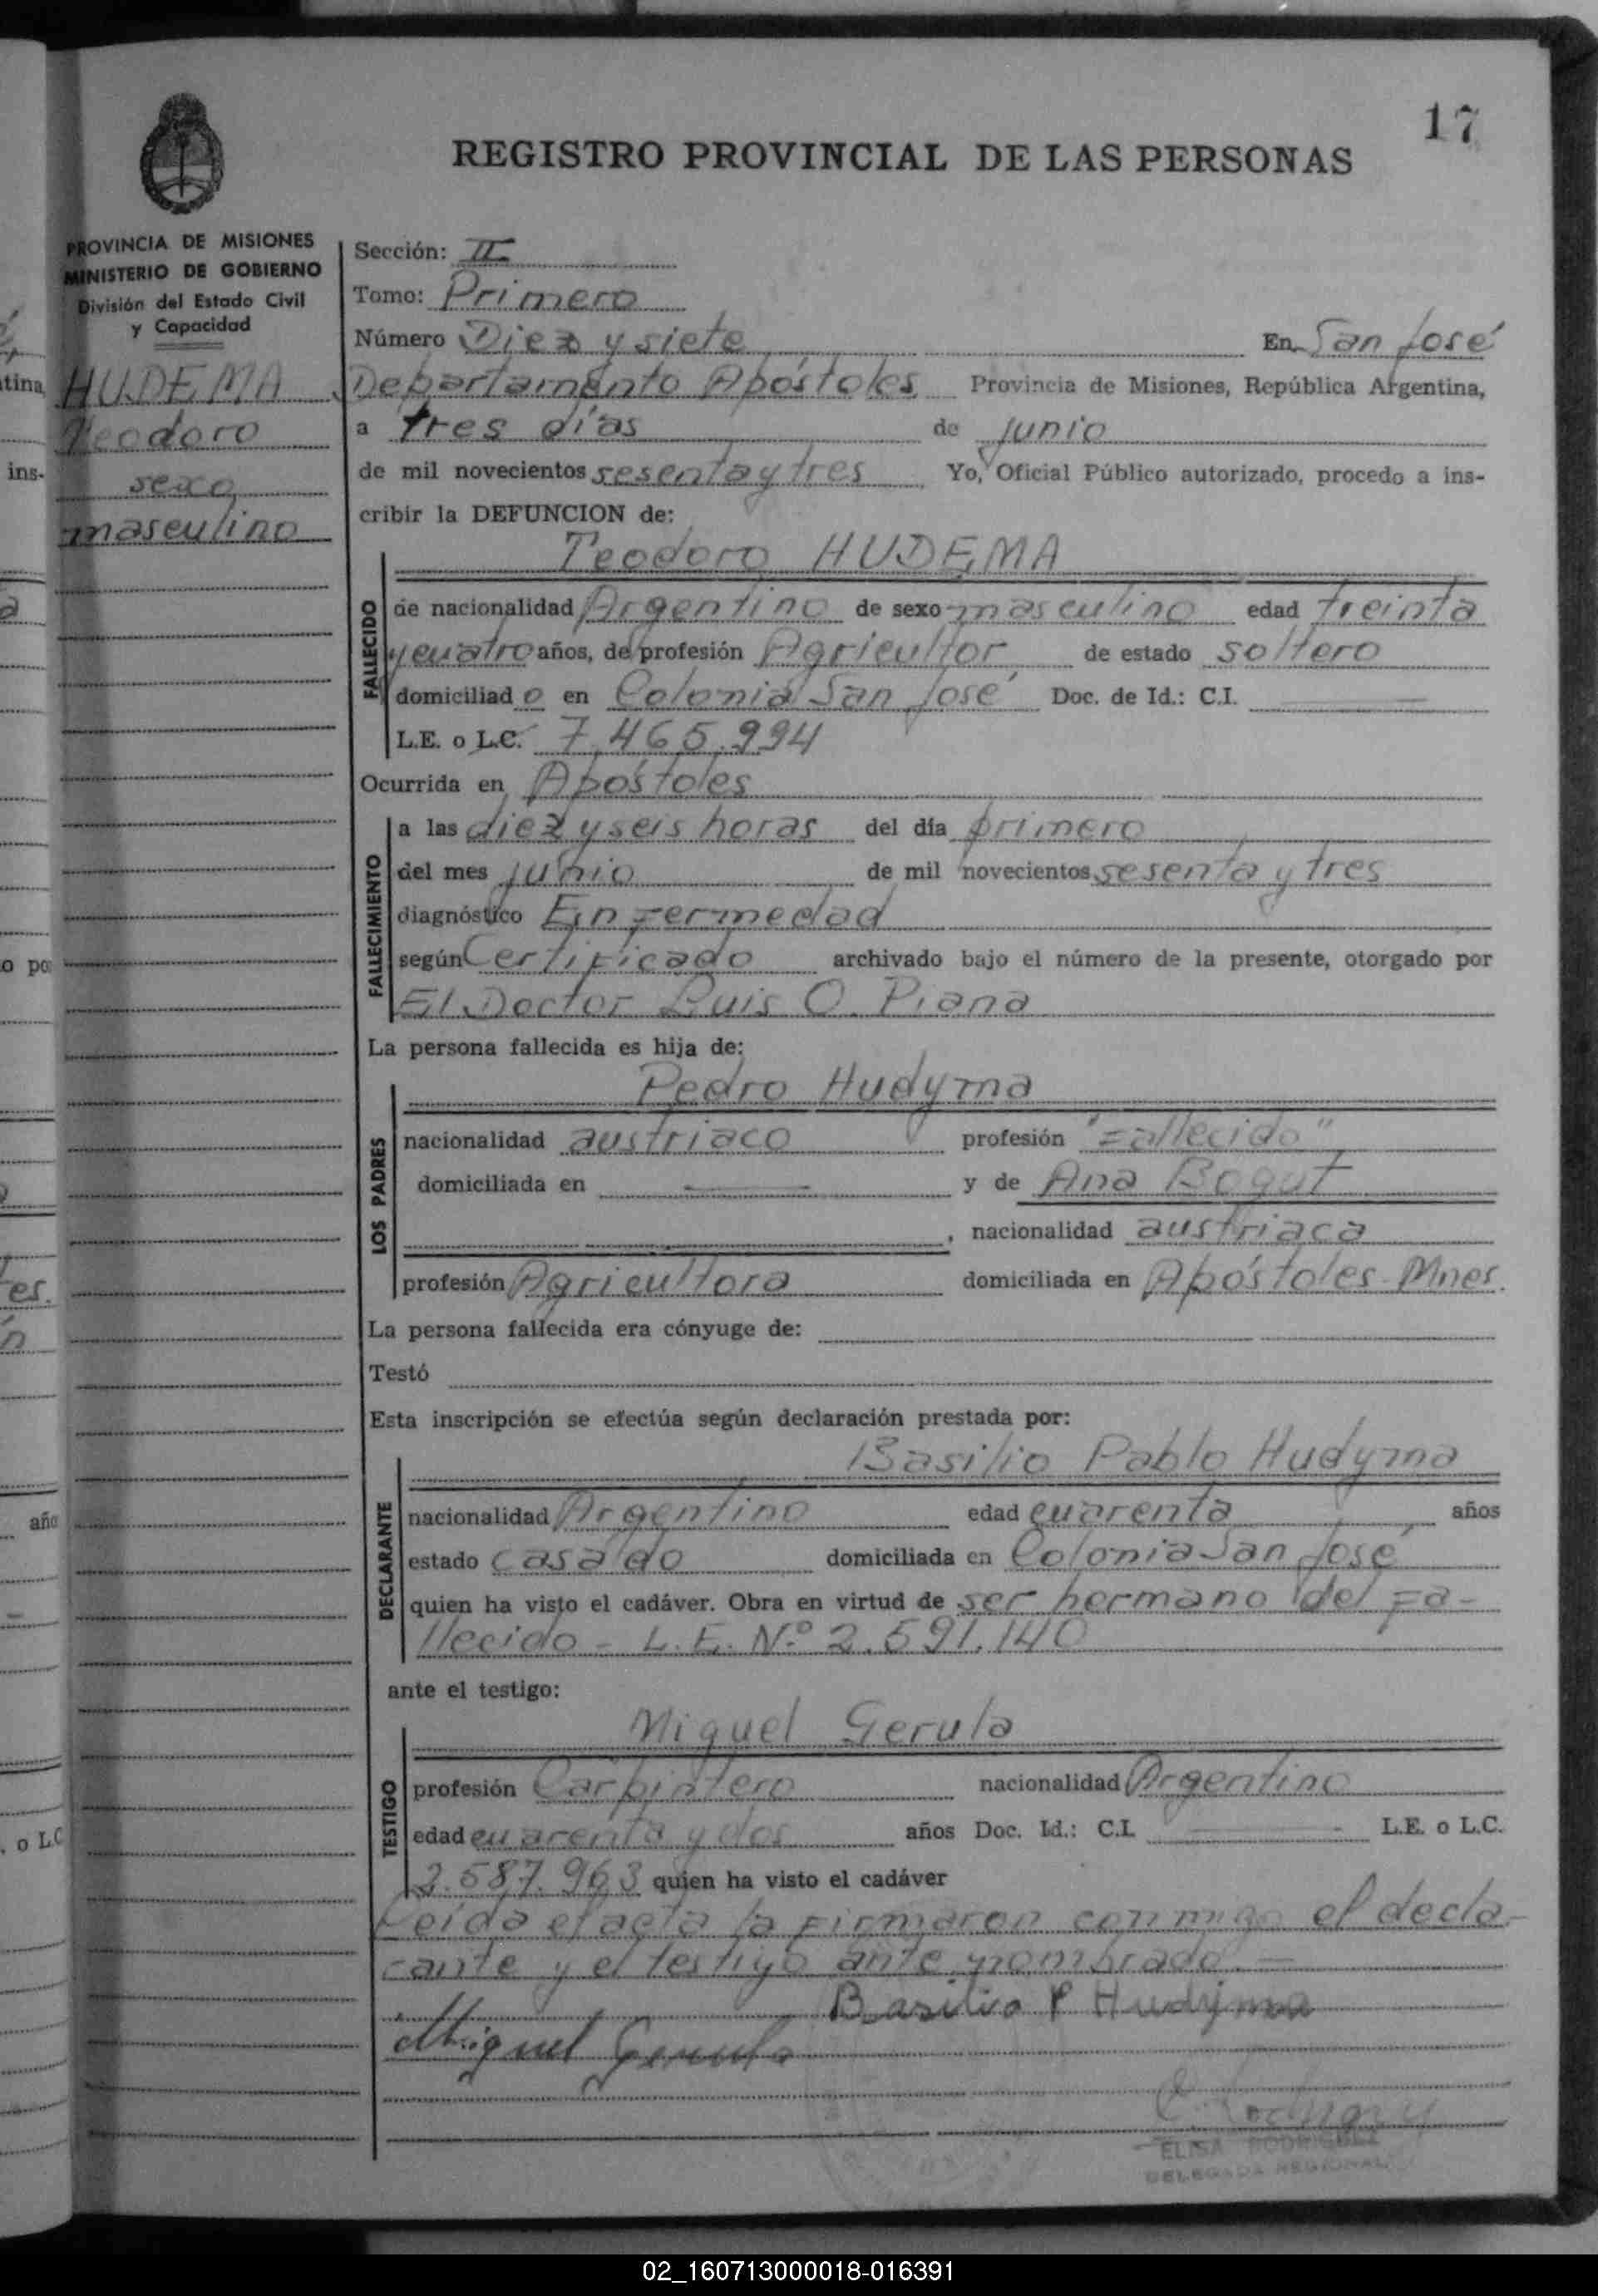 17
REGISTRO PROVINCIAL DE LAS PERSONAS
PROVINCIA DE MISIONES
MINISTERIO DE GOBIERNO
División del Estado Civil
y Capacidad
HUDEMA
Teodoro
sexo
masculino
Sección: II
Tomo: Primero
Número Diez y siete En San José
Departamento Apóstoles Provincia de Misiones, República Argentina,
a tres días de junio
de mil novecientos sesenta y tres Yo, Oficial Público autorizado, procedo a ins-
cribir la DEFUNCION de:
Teodoro HUDEMA
FALLECIDO
de nacionalidad Argentino de sexo masculino edad treinta
y cuatro años, de profesión Agricultor de estado soltero
domiciliado en Colonia San José Doc. de Id.: C.I.
L.E. o L.C. 7.465.994
Ocurrida en Apóstoles
FALLECIMIENTO
a las diez y seis horas del día primero
del mes junio de mil novecientos sesenta y tres
diagnóstico Enfermedad
según Certificado archivado bajo el número de la presente, otorgado por
El Doctor Luis O. Piana
La persona fallecida es hija de:
Pedro Hudyma
LOS PADRES
nacionalidad austriaco profesión "Fallecido"
domiciliada en y de Ana Bogut
, nacionalidad austriaca
profesión Agricultora domiciliada en Apóstoles-Mnes.
La persona fallecida era cónyuge de:
Testó
Esta inscripción se efectúa según declaración prestada por:
Basilio Pablo Hudyma
DECLARANTE
nacionalidad Argentino edad cuarenta años
estado casado domiciliada en Colonia San José
quien ha visto el cadáver. Obra en virtud de ser hermano del fa-
llecido - L.E. Nº 2.591.140
ante el testigo:
Miguel Gerula
TESTIGO
profesión Carpintero nacionalidad Argentino
edad cuarenta y dos años Doc. Id.: C.I. L.E. o L.C.
2.587.963 quien ha visto el cadáver
Leída el acta la firmaron conmigo el decla-
rante y el testigo ante nombrado.-
Basilio P Hudyma
Miguel Gerula
ELISA RODRIGUEZ
DELEGADA REGIONAL
02_160713000018-016391